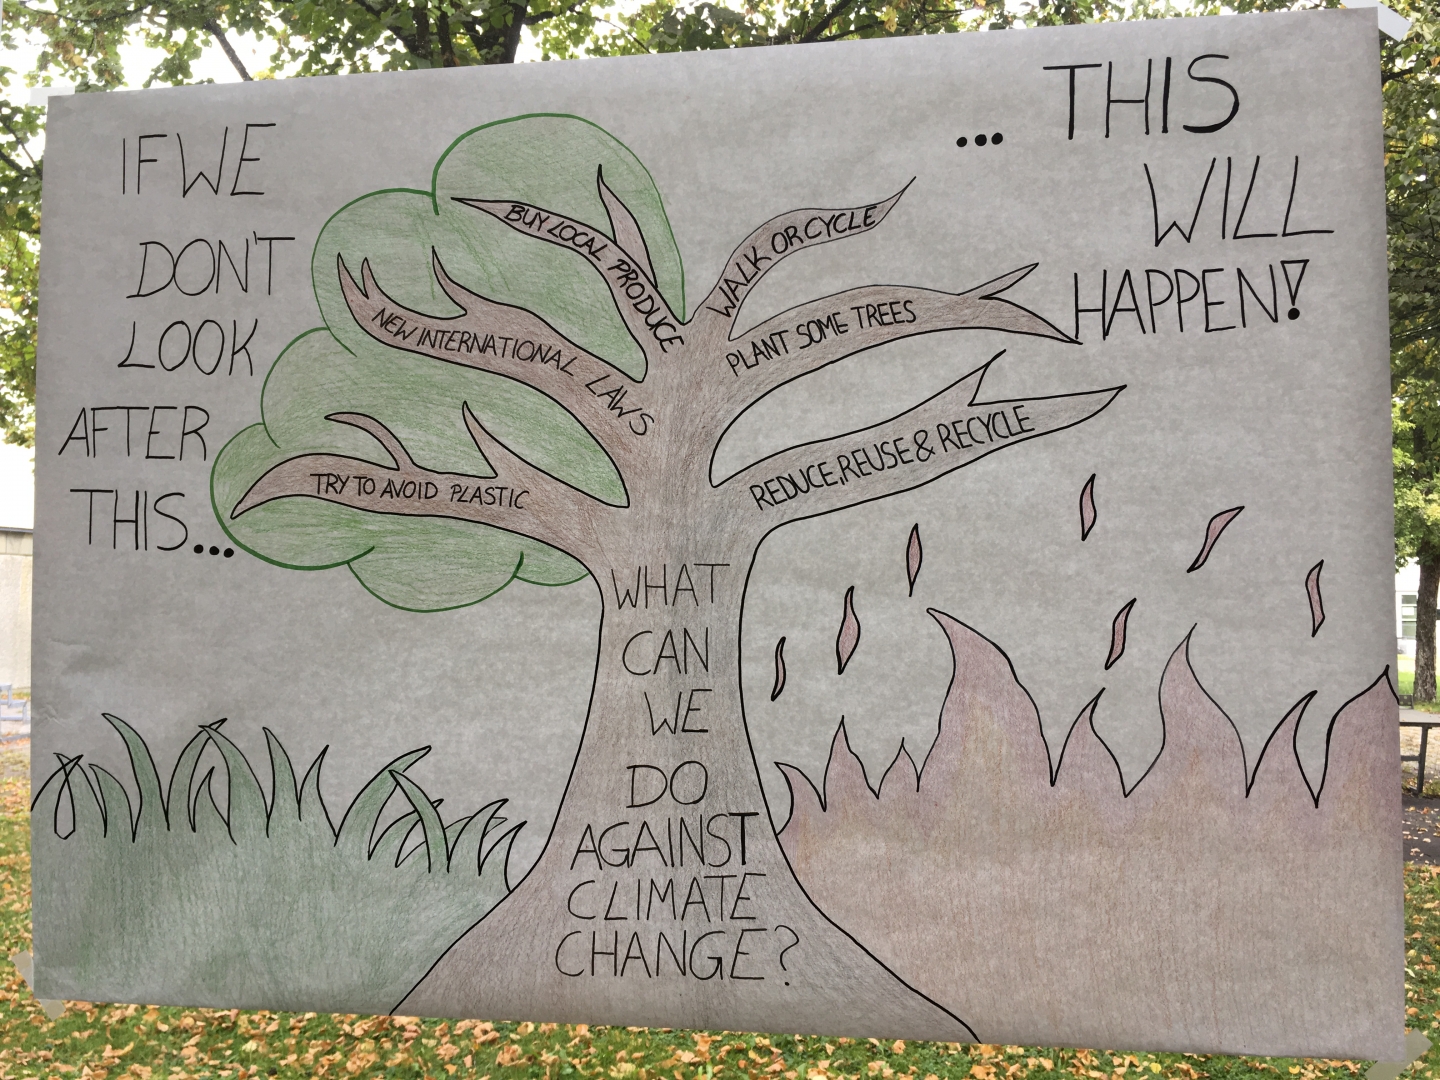 IF WE
DON'T
LOOK
AFTER
THIS...
... THIS
WILL
HAPPEN!
BUY LOCAL PRODUCE
NEW INTERNATIONAL LAWS
TRY TO AVOID PLASTIC
WALK OR CYCLE
PLANT SOME TREES
REDUCE, REUSE & RECYCLE
WHAT
CAN
WE
DO
AGAINST
CLIMATE
CHANGE?